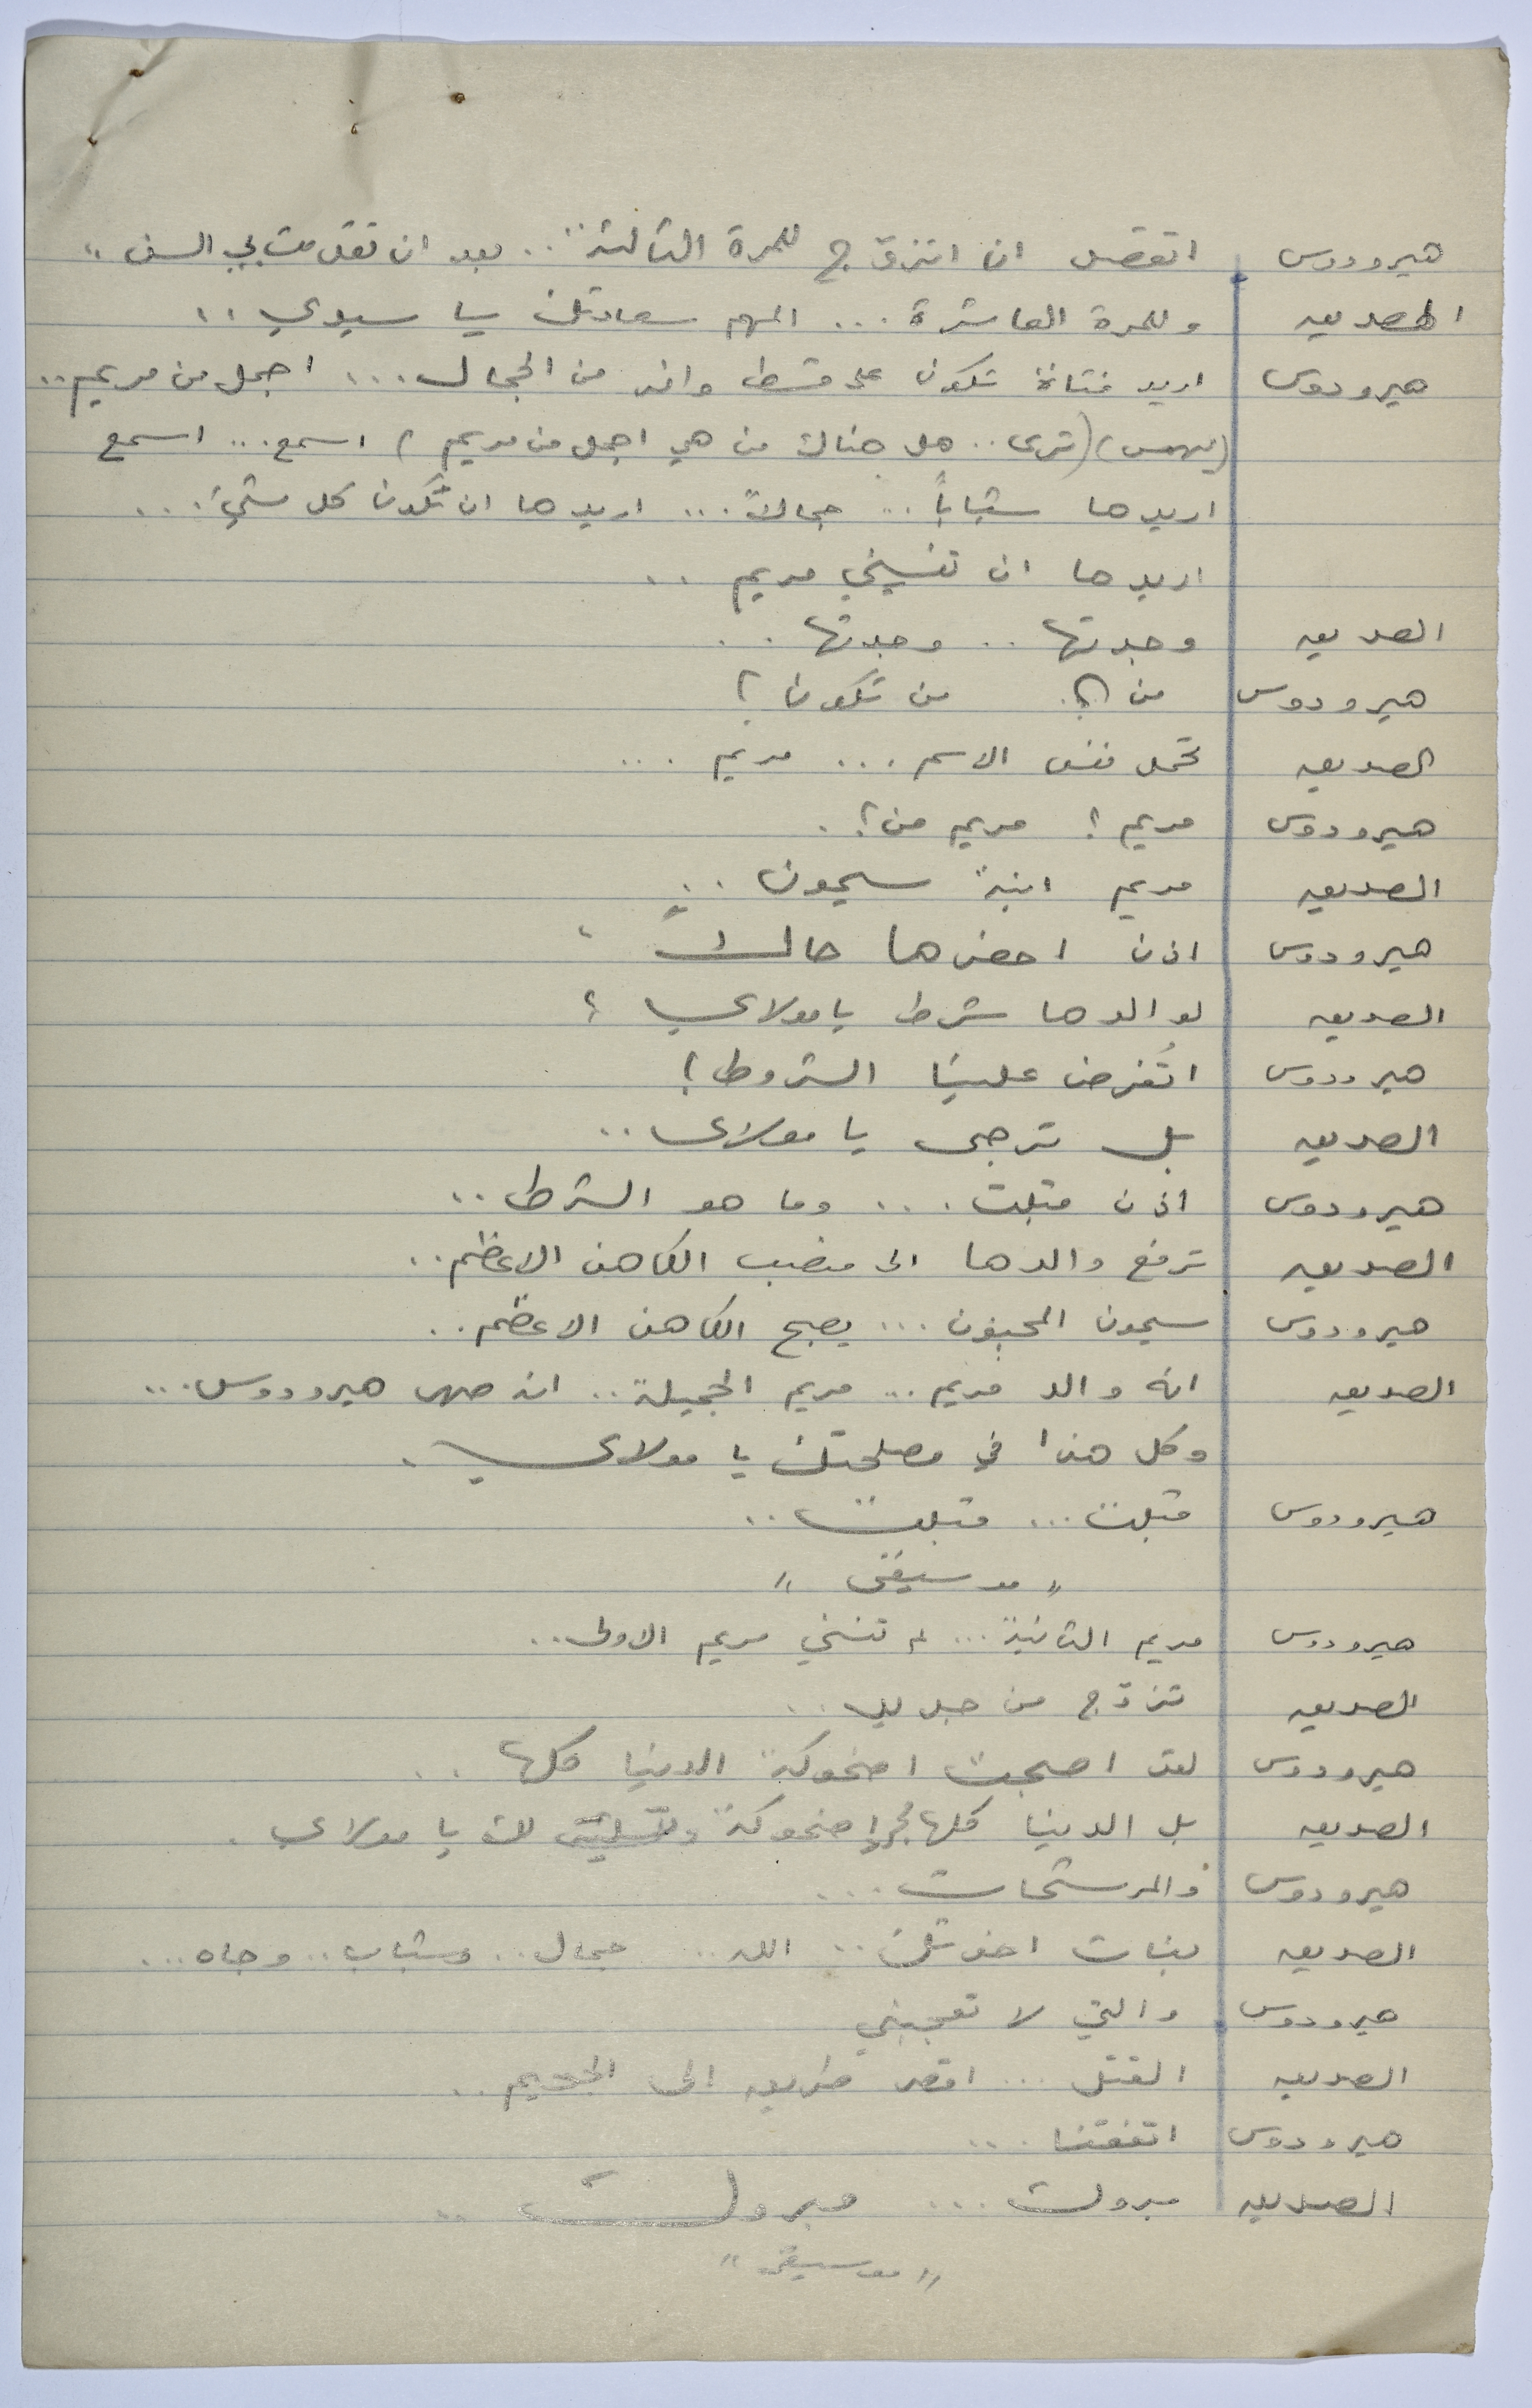 هيرودوس اتقصد ان اتزوّج للمرة الثالثة .. بعد ان تقدمت بي السن "
الصديق وللمرة العاشرة ... المهم سعادتك يا سيدي ..
هيرودوس اريد فتاة تكون على قسط وافر من الجمال ... اجمل من مريم ..
(يهمس) (ترى .. هل هناك من هي اجمل من مريم) اسمع ... اسمع
اريدها شباباً .. جمالاً ... اريدها ان تكون كل شيء ...
اريدها ان تنسيني مريم ..
الصديق وجدتها .. وجدتها ..
هيرودوس من ؟. من تكون ؟
الصديق تحمل نفس الاسم ... مريم ...
هيرودوس مريم ؟ مريم من ؟ .
الصديق مريم ابنة سيمون ..
هيرودوس اذن احضرها حالاً
الصديق لوالدها شرط يا مولاي ؟
هيرودوس اتُفرض علينا الشروط ؟
الصديق بل ترجى يا مولاي ..
هيرودوس اذن قبلت ... وما هو الشرط ..
الصديق ترفع والدها الى منصب الكاهن الاعظم ..
هيرودوس سيمون المجنون ... يصبح الكاهن الاعظم ..
الصديق انه والد مريم ... مريم الجميلة .. انه صهر هيرودوس ...
وكل هذا في مصلحتك يا مولاي .
هيرودوس قبلت ... قبلت ..
" موسيقى "
هيرودوس مريم الثانية ... لم تنسني مريم الاولى ..
الصديق تزوّج من جديد ..
هيرودوس لقد اصبحت اضحوكة الدنيا كلها ..
الصديق بل الدنيا كلها مجرد اضحوكة وتسلية لك يا مولاي .
هيرودوس والمرشحات ...
الصديق بنات اخوتك .. الله ... جمال .. وشباب .. وجاه ...
هيرودوس والتي لا تعجبني
الصديق القتل ... اقصر طريق الى الجحيم ..
هيرودوس اتفقنا ...
الصديق مبروك ... مبروك ..
" موسيقى "